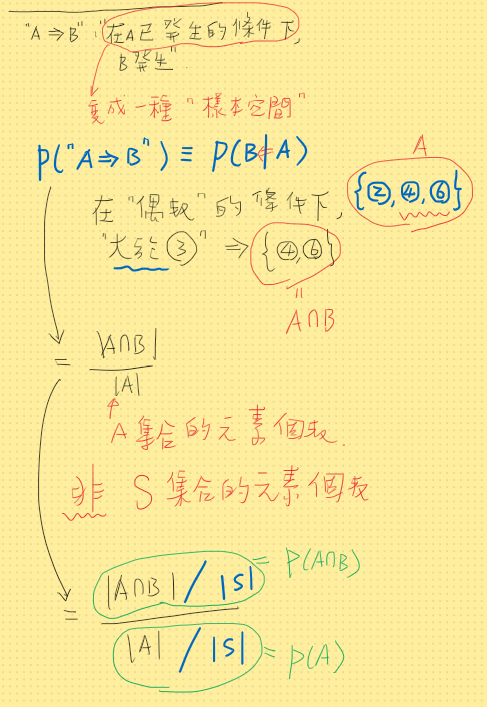 "A⇒B":"在A已發生的條件下,
B發生"
變成一種"樣本空間"
P("A⇒B") ≡ P(B|A)
A
{②,④,⑥}
在"偶數"的條件下,
"大於③" ⇒ {④,⑥}
=
A∩B
= |A∩B|
|A|
A集合的元素個數.
非 S集合的元素個數
= |A∩B| / |S| = P(A∩B)
|A| / |S| = P(A)